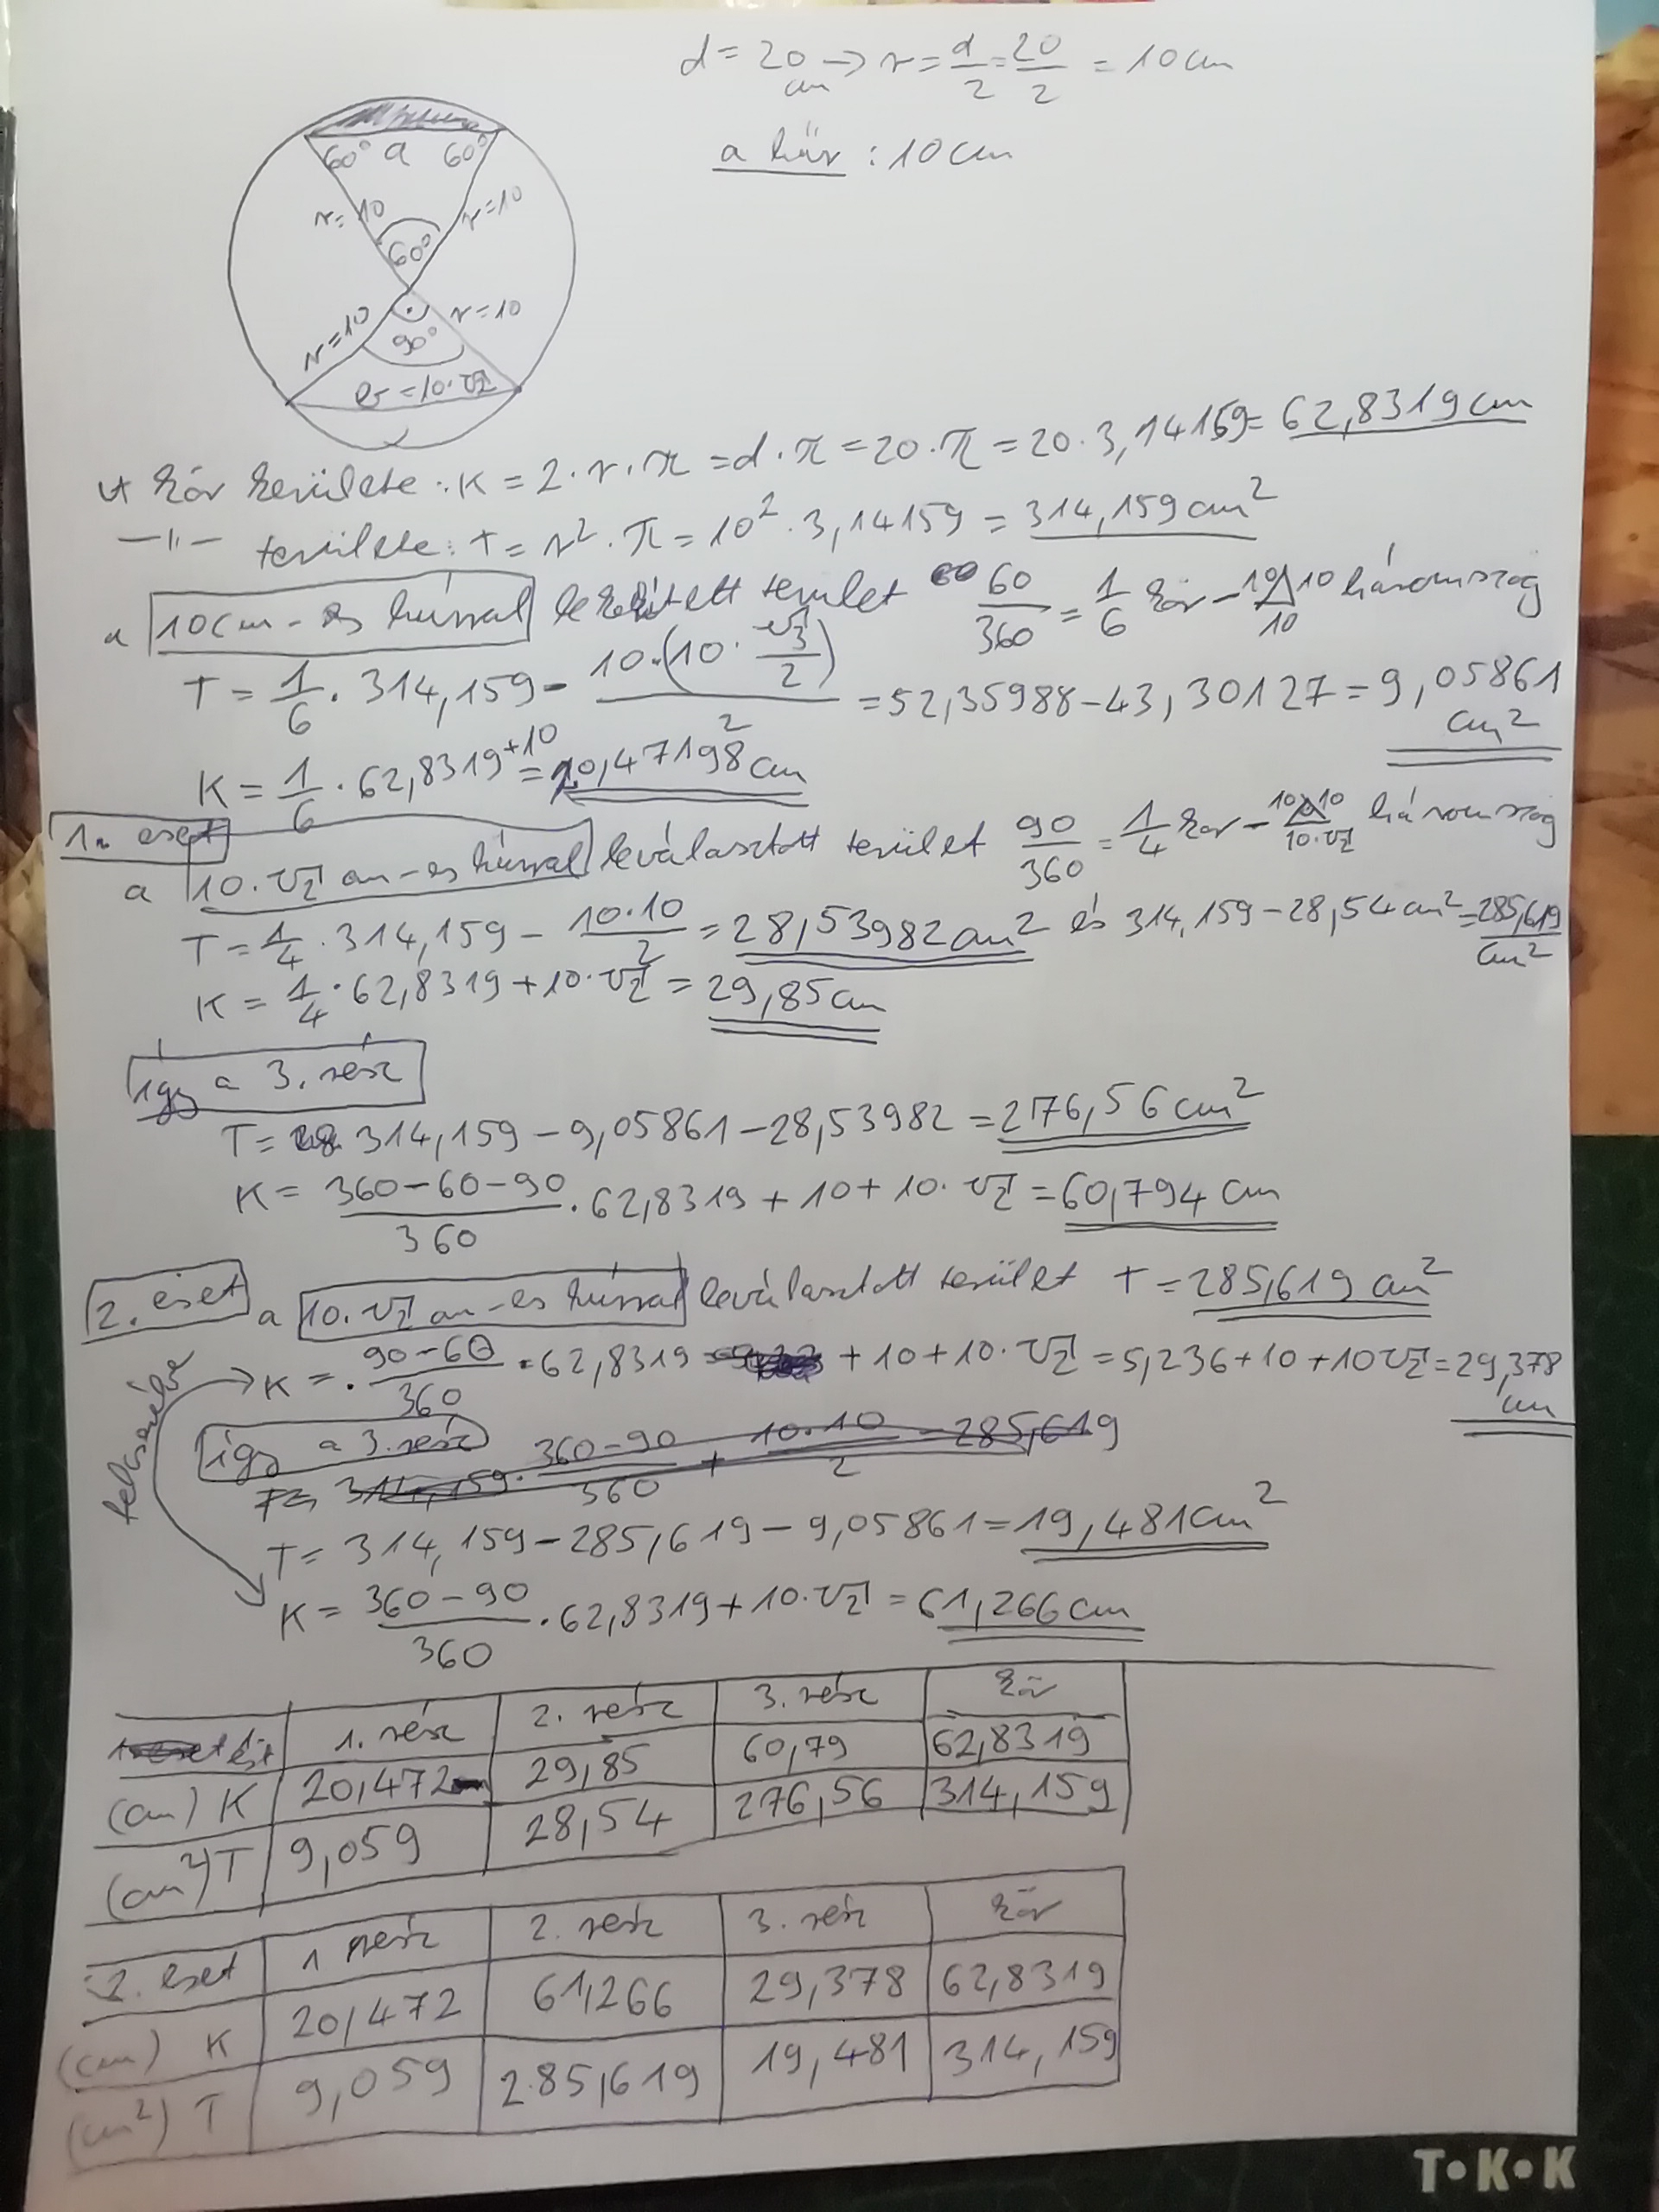 d = 20 cm → r = d/2 = 20/2 = 10 cm
a húr : 10 cm
60° a 60°
r=10 r=10
60°
r=10 r=10
90°
b=10·√2
A kör kerülete: K = 2·r·π = d·π = 20·π = 20·3,14159 = 62,8319 cm
—"— területe: T = r²·π = 10²·3,14159 = 314,159 cm²
a 10 cm-es húrral terület 60/360 = 1/6 kör - 10 10 10 háromszög
T = 1/6 · 314,159 - 10·(10·√3/2)/2 = 52,35988 - 43,30127 = 9,05861 cm²
K = 1/6 · 62,8319 + 10 = 20,47198 cm
1. eset
a 10·√2 cm-es húrral leválasztott terület 90/360 = 1/4 kör - 10 10 10·√2 háromszög
T = 1/4 · 314,159 - 10·10/2 = 28,53982 cm² és 314,159 - 28,54 cm² = 285,619 cm²
K = 1/4 · 62,8319 + 10·√2 = 29,85 cm
így a 3. rész
T = 314,159 - 9,05861 - 28,53982 = 276,56 cm²
K = 360-60-90/360 · 62,8319 + 10 + 10·√2 = 60,794 cm
2. eset a 10·√2 cm-es húrral leválasztott terület T = 285,619 cm²
K = 90-60/360 · 62,8319 + 10 + 10·√2 = 5,236 + 10 + 10√2 = 29,378 cm
felcserélve
így a 3. rész
T = 314,159 · 360-90/360 + 10·10/2 - 285,619
T = 314,159 - 285,619 - 9,05861 = 19,481 cm²
K = 360-90/360 · 62,8319 + 10·√2 = 61,266 cm
1. rész 2. rész 3. rész kör
(cm) K 20,472 29,85 60,79 62,8319
(cm²) T 9,059 28,54 276,56 314,159
2. eset 1 rész 2. rész 3. rész kör
(cm) K 20,472 61,266 29,378 62,8319
(cm²) T 9,059 285,619 19,481 314,159
T•K•K